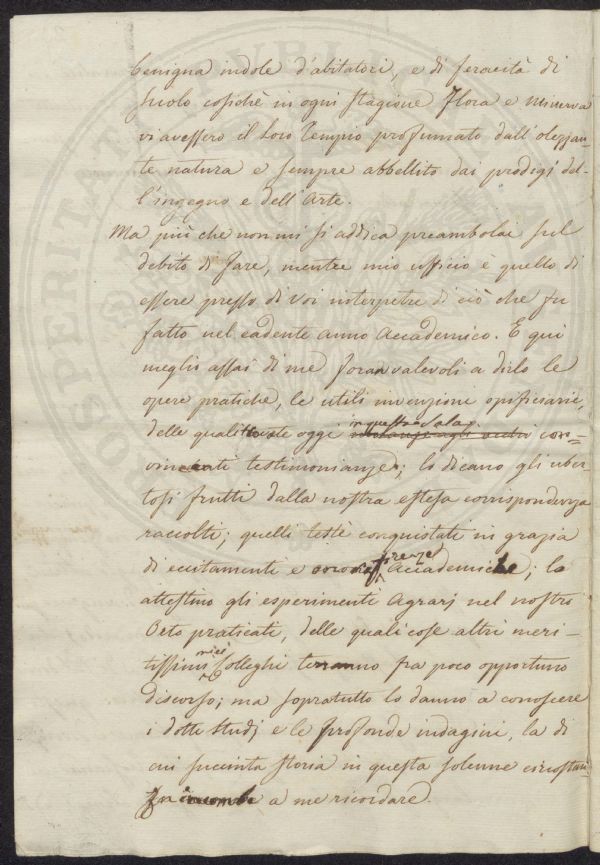 benigna indole d'abitatori, e di feracità di
suolo cosichè in ogni stagione Flora e Minerva
vi avessero il loro Tempio profumato dall'olezzan-
te natura e sempre abbellito dai prodigi del-
l'ingegno e dell'Arte.
Ma più che non mi si addica preambolai sul
debito di fare, mentre mio ufficio è quello di
essere presso di voi interpetre di ciò che fu
fatto nel cadente anno Accademico. E qui
meglio assai di me foran valevoli a dirlo le
opere pratiche, le utili invenzioni opificiarie,
in questa Sala
delle quali oggi con-
vincenti testimonianze; lo dicano gli uber-
tosi frutti dalla nostra estesa corrispondenza
raccolti; quelli testè conquistati in grazia
di eccitamenti e Accademiche; lo
attestino gli esperimenti Agrarj nel nostro
Orto praticati, delle quali cose altri meri-
tissimi miei Colleghi terranno fra poco opportuno
discorso; ma sopratutto lo danno a conoscere
i dotti studj e le profonde indagini, la di
cui succinta storia in questa solenne circostan-
za incombe a me ricordare.